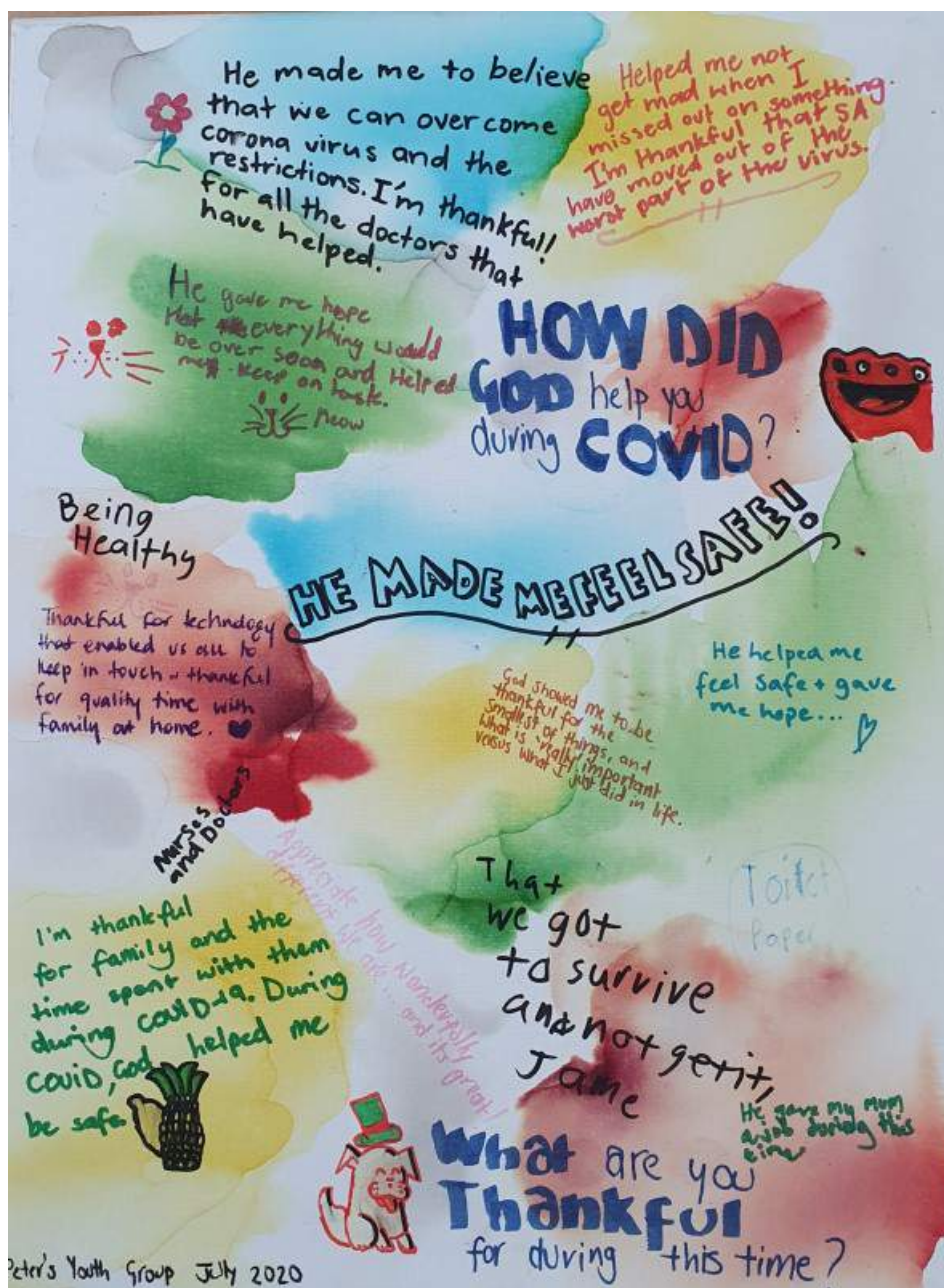 He made me to believe
that we can overcome
corona virus and the
restrictions. I'm thankful!
for all the doctors that
have helped.
Helped me not
get mad when I
missed out on something.
I'm thankful that SA
have moved out of the
worst part of the virus.
He gave me hope
that everything would
be over soon and Helped
me keep on task.
Meow
HOW DID
GOD help you
during COVID?
Being
Healthy
HE MADE ME FEEL SAFE!
Thankful for technology
that enabled us all to
keep in touch + thankful
for quality time with
family at home.
God showed me to be
thankful for the
smallest of things, and
what is 'really' important
versus what I just did in life.
He helped me
feel safe + gave
me hope...
Nurses
and Doctors
Appreciate how wonderfully
different we are... and its great!
That
we got
to survive
and not get it,
Jame
Toilet
Paper
I'm thankful
for family and the
time spent with them
during COVID-19. During
COVID, God helped me
be safe.
He gave my Mum
a job during this
time
What are you
Thankful
for during this time?
Peter's Youth Group July 2020